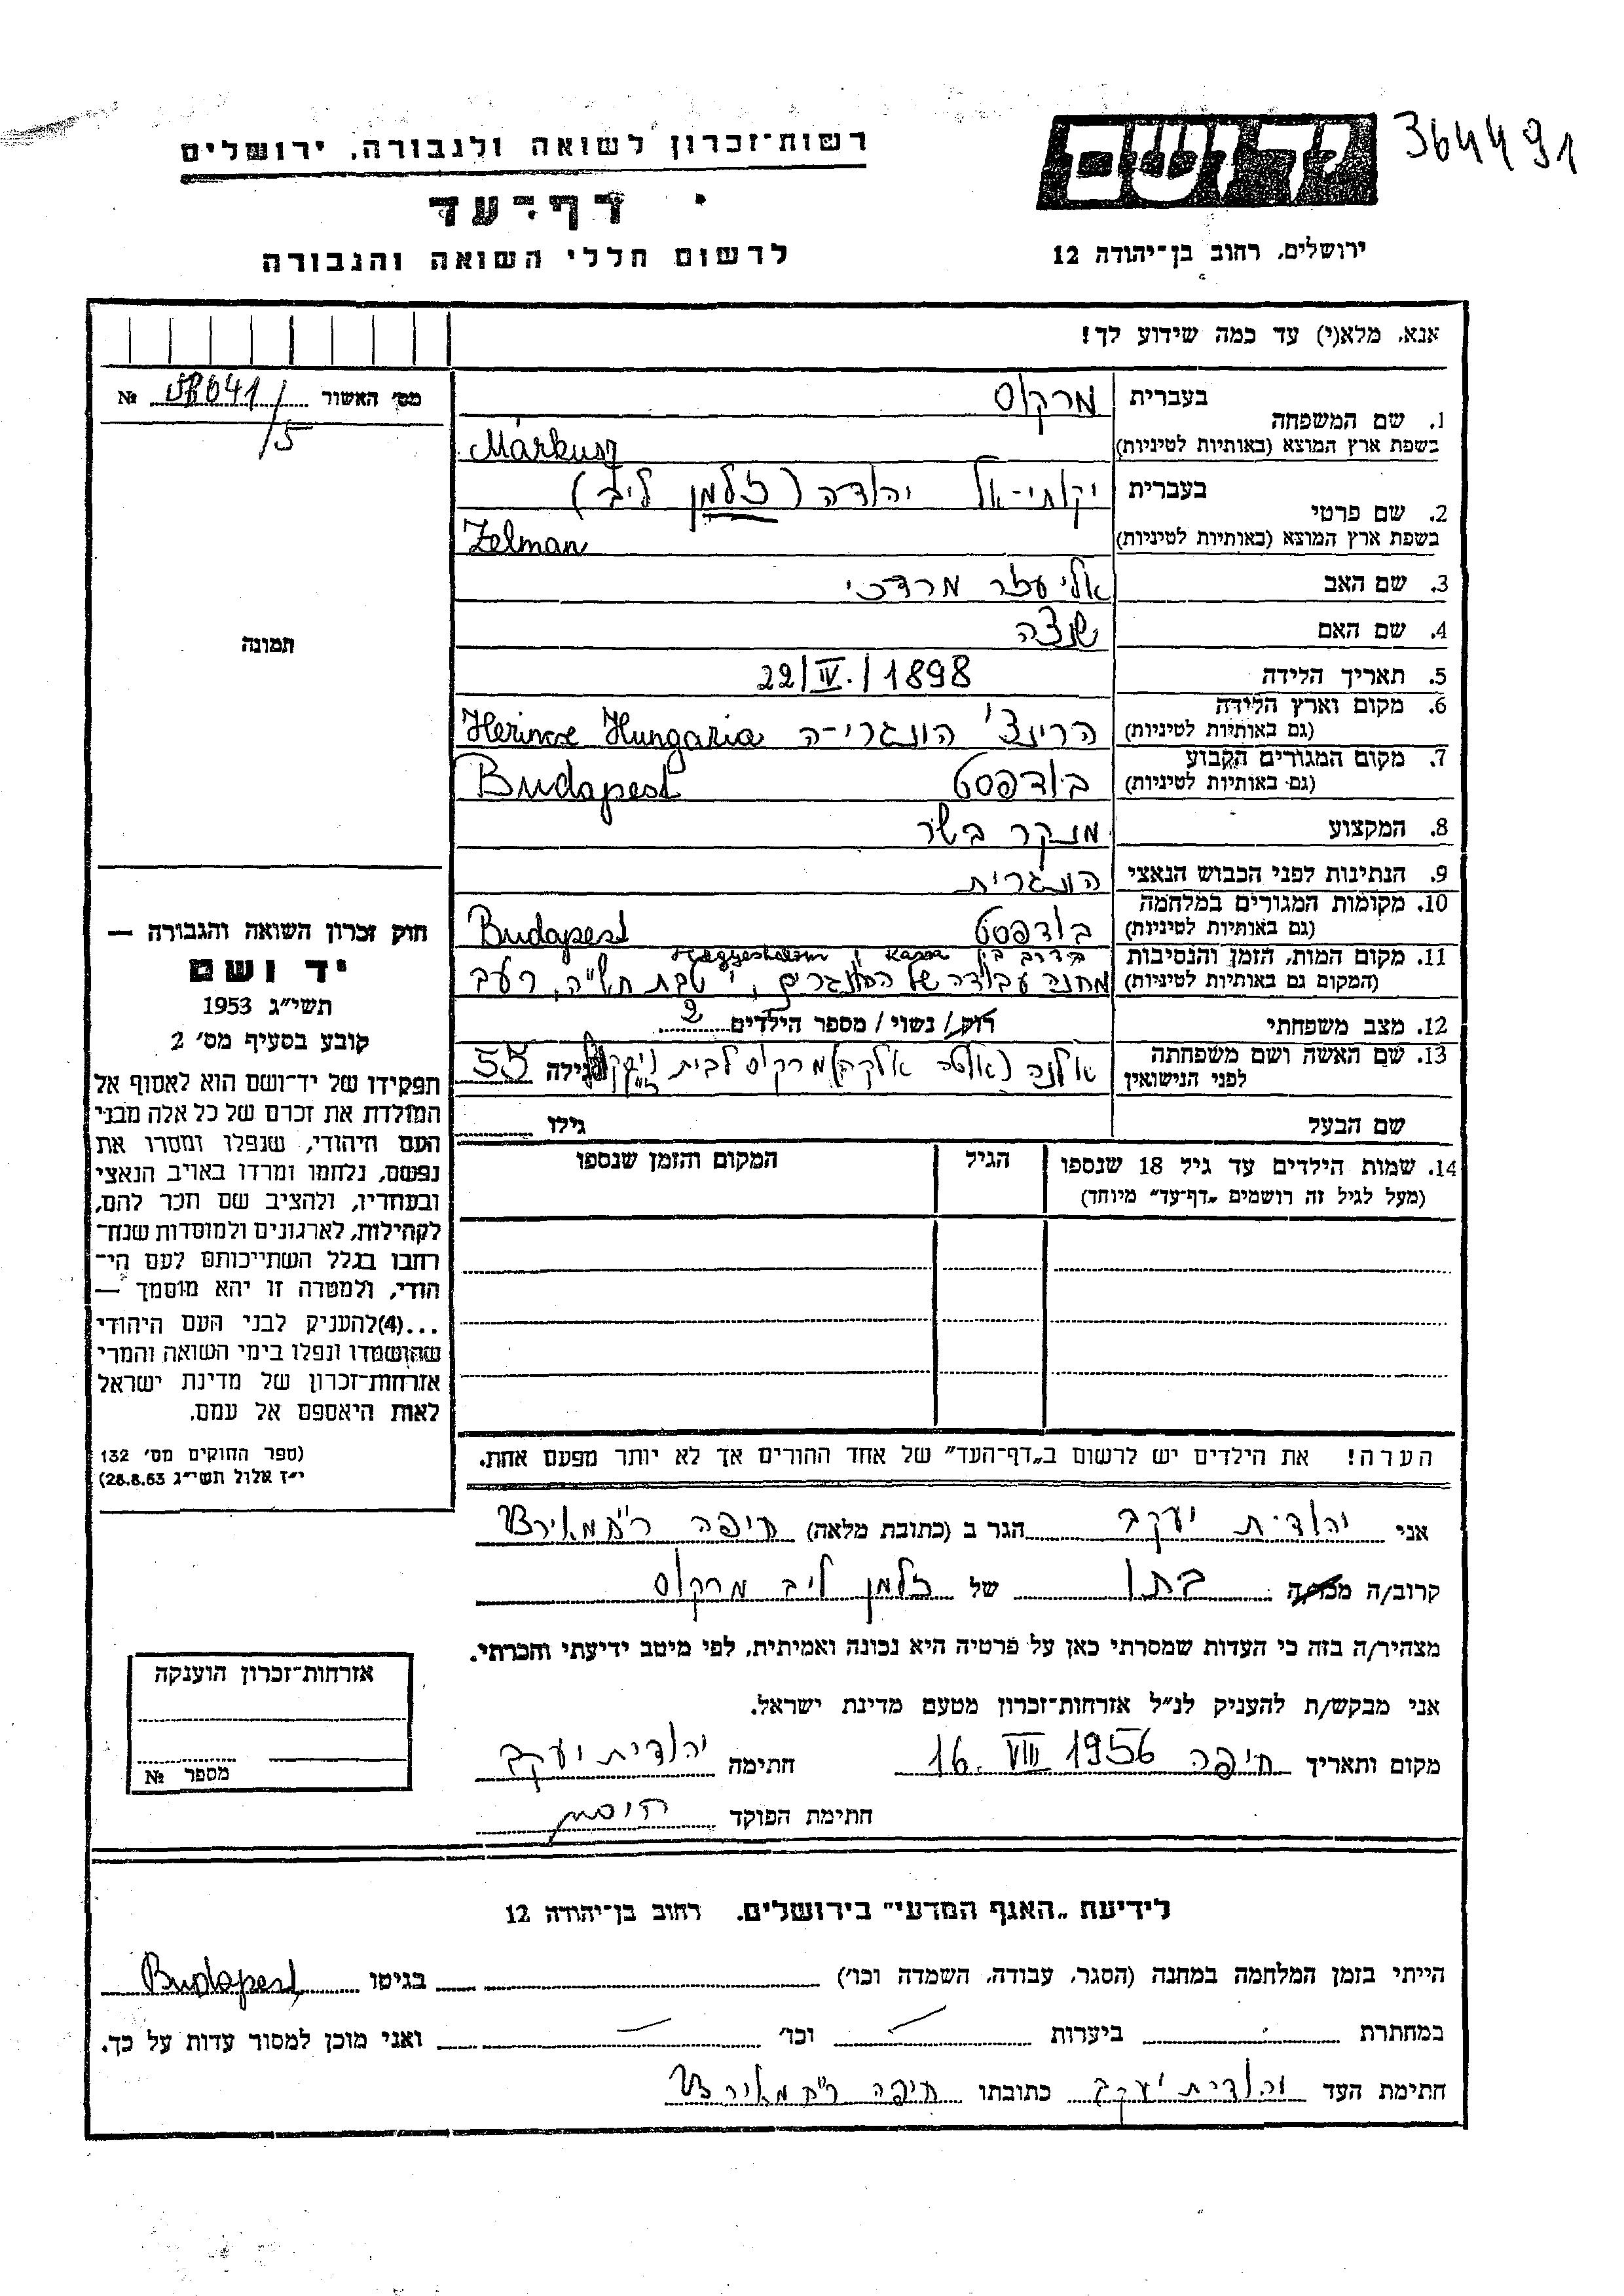 364491
רשות־זכרון לשואה ולגבורה, ירושלים
יד ושם
דף־עד
לרשום חללי השואה והגבורה
ירושלים, רחוב בן־יהודה 12
אנא, מלא(י) עד כמה שידוע לך!
מס' האשור № /5
1. שם המשפחה
בעברית מרקוס
בשפת ארץ המוצא (באותיות לטיניות) Márkusz
2. שם פרטי
בעברית יקותי-אל יהודה (זלמן ליב)
בשפת ארץ המוצא (באותיות לטיניות) Zelman
3. שם האב אליעזר מרדכי
4. שם האם
5. תאריך הלידה 22/IV./1898
6. מקום וארץ הלידה (גם באותיות לטיניות) הרינצ' הונגרי-ה Herince Hungaria
7. מקום המגורים הקבוע (גם באותיות לטיניות) בודפסט Budapest
8. המקצוע מנקר בשר
9. הנתינות לפני הכבוש הנאצי הונגרית
10. מקומות המגורים במלחמה (גם באותיות לטיניות) בודפסט Budapest
11. מקום המות, הזמן והנסיבות (המקום גם באותיות לטיניות)
בדרך בין Kassa ו Hegyeshalom
מחנה עבודה של ההונגרים, י' טבת תש"ה, רעב
12. מצב משפחתי רווק / נשוי / מספר הילדים 2
13. שם האשה ושם משפחתה לפני הנישואין אלקה) מרקוס לבית גילה 55
שם הבעל גילו
14. שמות הילדים עד גיל 18 שנספו הגיל המקום והזמן שנספו
(מעל לגיל זה רושמים „דף־עד" מיוחד)
הערה! את הילדים יש לרשום ב„דף־העד" של אחד ההורים אך לא יותר מפעם אחת.
תמונה
חוק זכרון השואה והגבורה —
יד ושם
תשי״ג 1953
קובע בסעיף מס' 2
תפקידו של יד־ושם הוא לאסוף אל
המולדת את זכרם של כל אלה מבני
העם היהודי, שנפלו ומסרו את
נפשם, נלחמו ומרדו באויב הנאצי
ובעוזריו, ולהציב שם וזכר להם,
לקהילות, לארגונים ולמוסדות שנח־
רבו בגלל השתייכותם לעם הי־
הודי, ולמטרה זו יהא מוסמך —
...(4) להעניק לבני העם היהודי
שהושמדו ונפלו בימי השואה והמרי
אזרחות־זכרון של מדינת ישראל
לאות היאספם אל עמם.
(ספר החוקים מס' 132
י״ז אלול תשי״ג 28.8.53)
אני יהודית יעקב הגר ב (כתובת מלאה) חיפה
קרוב/ה מכר/ה בתו של זלמן ליב מרקוס
מצהיר/ה בזה כי העדות שמסרתי כאן על פרטיה היא נכונה ואמיתית, לפי מיטב ידיעתי והכרתי.
אני מבקש/ת להעניק לנ״ל אזרחות־זכרון מטעם מדינת ישראל.
מקום ותאריך חיפה 16. VIII 1956 חתימה יהודית יעקב
חתימת הפוקד
אזרחות־זכרון הוענקה
מספר №
לידיעת „האגף המדעי" בירושלים. רחוב בן־יהודה 12
הייתי בזמן המלחמה במחנה (הסגר, עבודה, השמדה וכו') בגיטו Budapest
במחתרת ביערות וכו' ואני מוכן למסור עדות על כך.
חתימת העד יהודית יעקב כתובתו חיפה